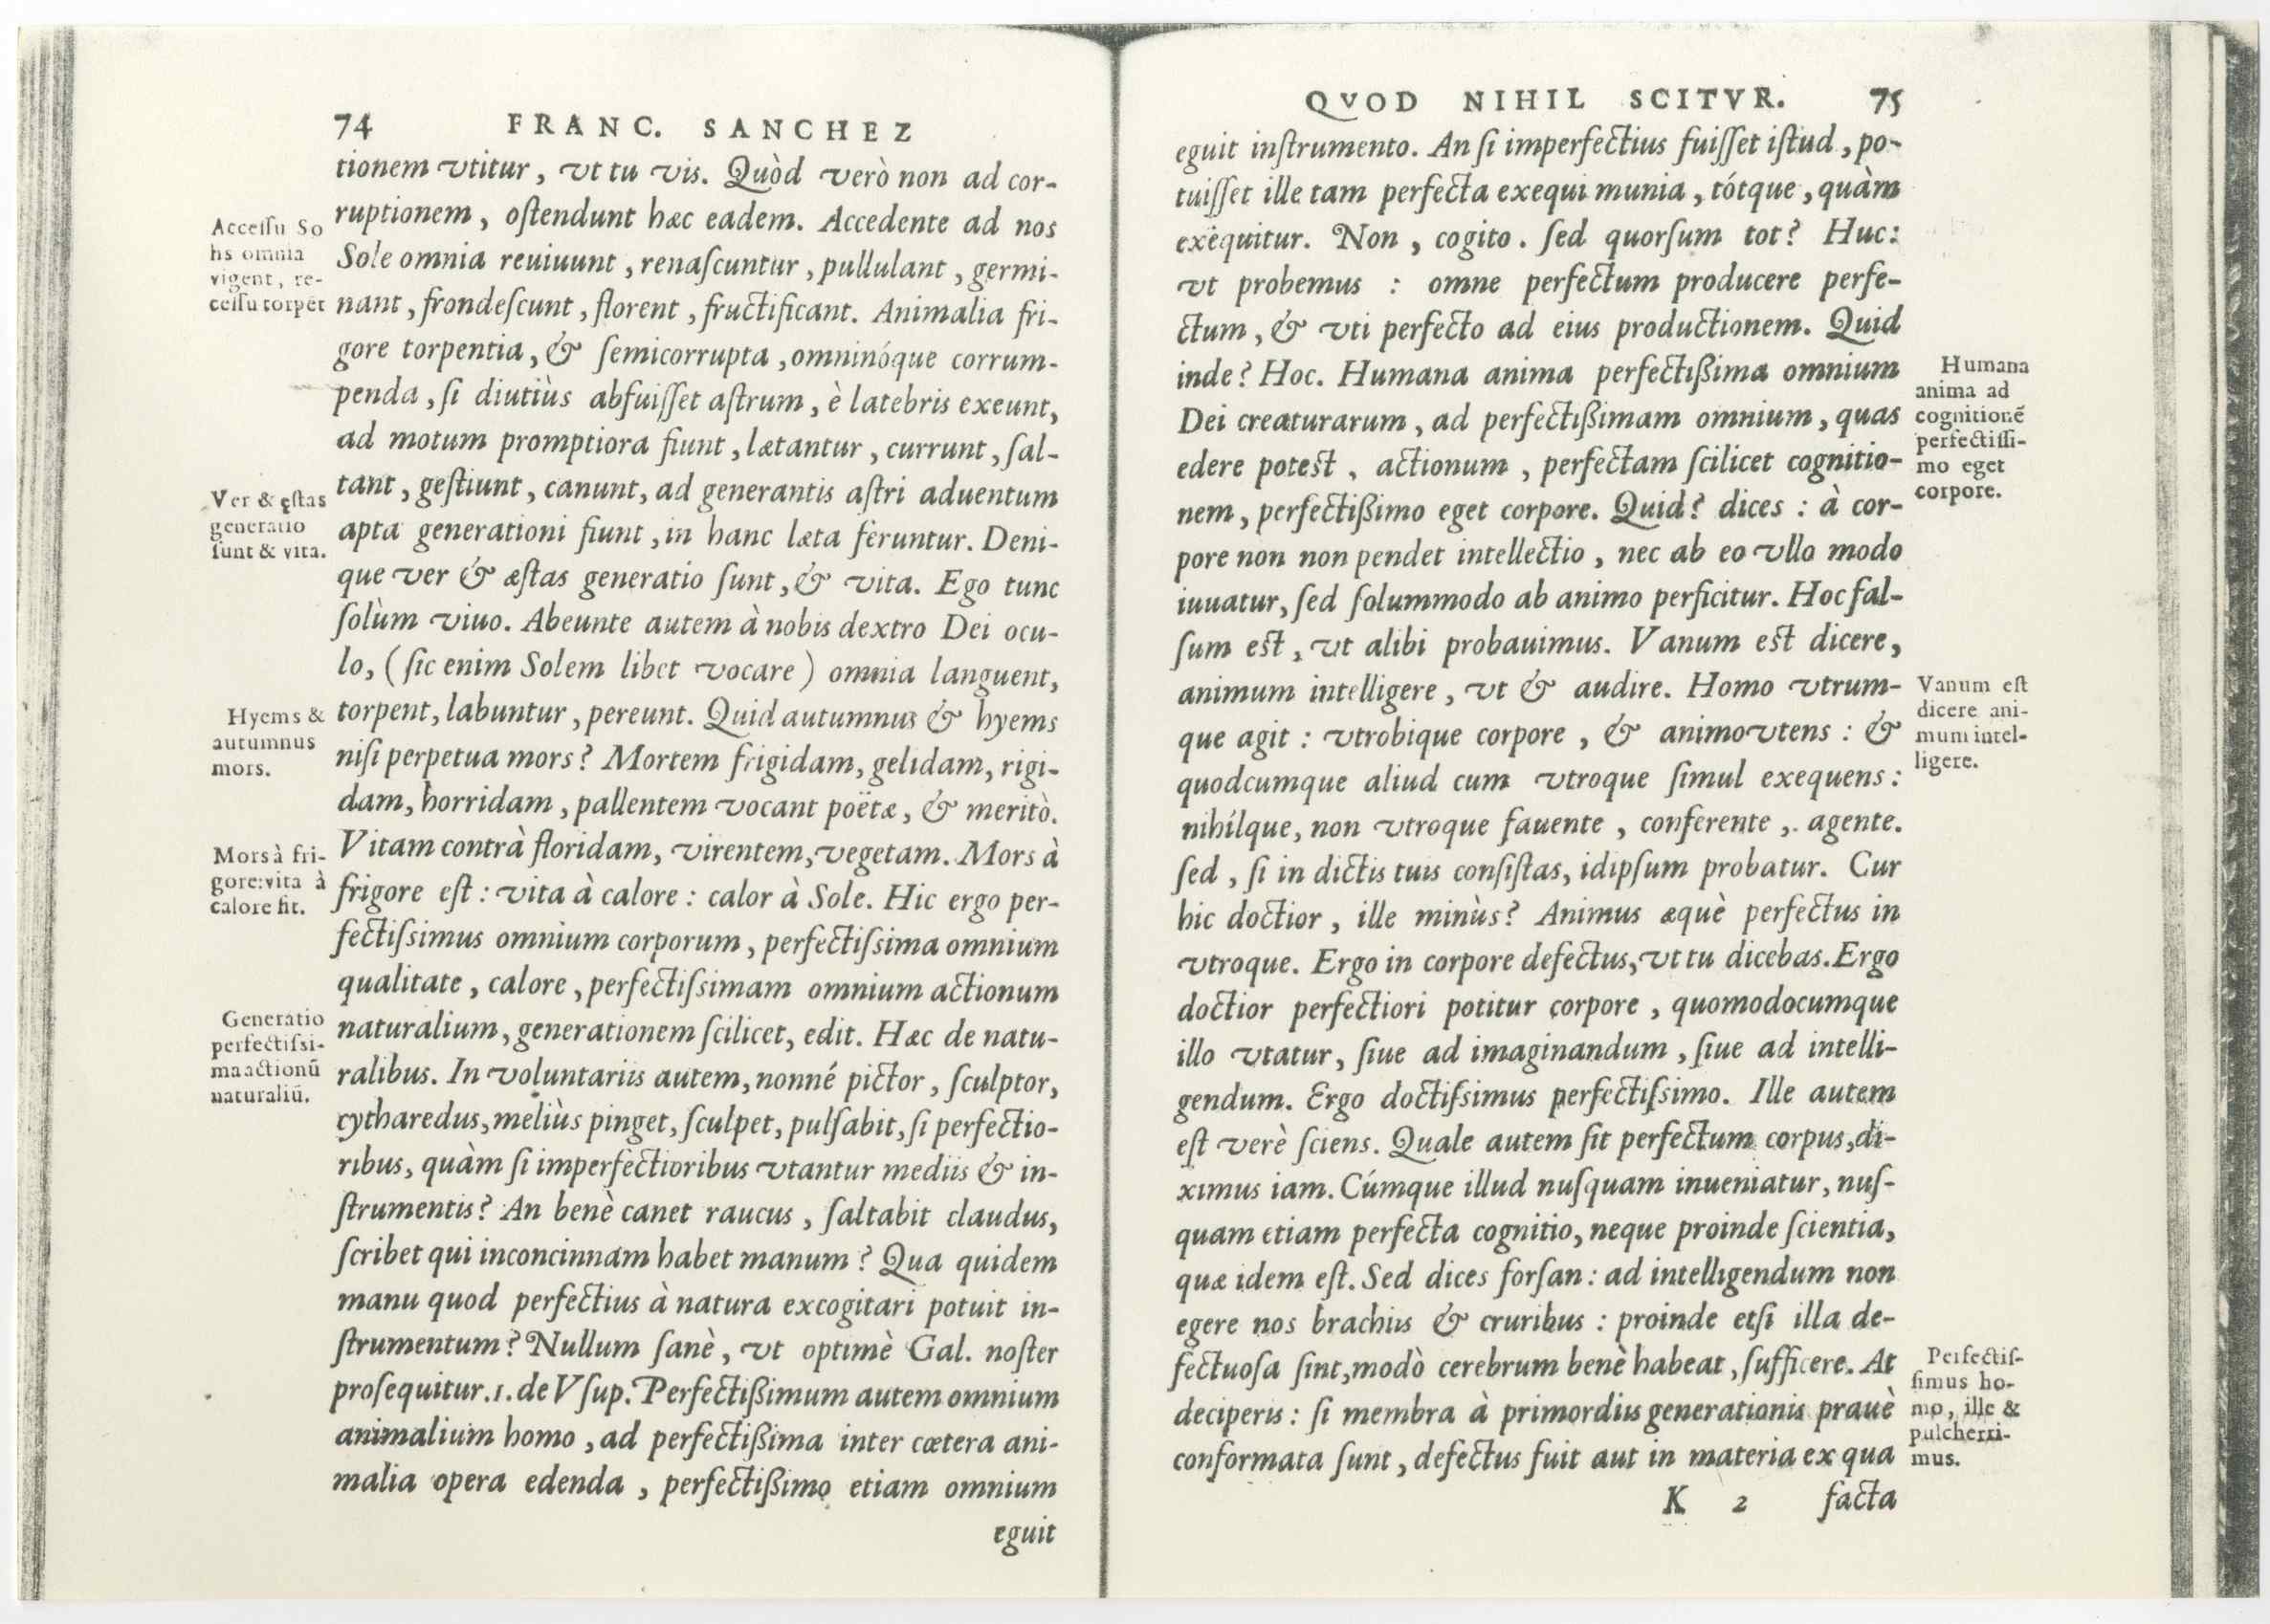 74 FRANC. SANCHEZ
tionem vtitur, vt tu vis. Quòd verò non ad cor-
ruptionem, oſtendunt hæc eadem. Accedente ad nos
Sole omnia reuiuunt, renaſcuntur, pullulant, germi-
nant, frondeſcunt, florent, fructificant. Animalia fri-
gore torpentia, & ſemicorrupta, omninóque corrum-
penda, ſi diutiùs abfuiſſet aſtrum, è latebris exeunt,
ad motum promptiora fiunt, lætantur, currunt, ſal-
tant, geſtiunt, canunt, ad generantis aſtri aduentum
apta generationi fiunt, in hanc læta feruntur. Deni-
que ver & æſtas generatio ſunt, & vita. Ego tunc
ſolùm viuo. Abeunte autem à nobis dextro Dei ocu-
lo, (ſic enim Solem libet vocare) omnia languent,
torpent, labuntur, pereunt. Quid autumnus & hyems
niſi perpetua mors? Mortem frigidam, gelidam, rigi-
dam, horridam, pallentem vocant poëtæ, & meritò.
Vitam contrà floridam, virentem, vegetam. Mors à
frigore eſt: vita à calore: calor à Sole. Hic ergo per-
fectiſsimus omnium corporum, perfectiſsima omnium
qualitate, calore, perfectiſsimam omnium actionum
naturalium, generationem ſcilicet, edit. Hæc de natu-
ralibus. In voluntariis autem, nonné pictor, ſculptor,
cytharedus, meliùs pinget, ſculpet, pulſabit, ſi perfectio-
ribus, quàm ſi imperfectioribus vtantur mediis & in-
ſtrumentis? An benè canet raucus, ſaltabit claudus,
ſcribet qui inconcinnam habet manum? Qua quidem
manu quod perfectius à natura excogitari potuit in-
ſtrumentum? Nullum ſanè, vt optimè Gal. noſter
proſequitur.1. de Vſup. Perfectiſſimum autem omnium
animalium homo, ad perfectißima inter cætera ani-
malia opera edenda, perfectißimo etiam omnium
eguit
Acceſſu So
lis omnia
vigent, re-
ceſſu torpẽt
Ver & ęſtas
generatio
ſunt & vita.
Hyems &
autumnus
mors.
Mors à fri-
gore: vita à
calore fit.
Generatio
perfectiſsi-
ma actionũ
naturaliũ.
QVOD NIHIL SCITVR. 75
eguit inſtrumento. An ſi imperfectius fuiſſet iſtud, po-
tuiſſet ille tam perfecta exequi munia, tótque, quàm
exequitur. Non, cogito. ſed quorſum tot? Huc:
vt probemus : omne perfectum producere perfe-
ctum, & vti perfecto ad eius productionem. Quid
inde? Hoc. Humana anima perfectißima omnium
Dei creaturarum, ad perfectißimam omnium, quas
edere poteſt, actionum, perfectam ſcilicet cognitio-
nem, perfectißimo eget corpore. Quid? dices : à cor-
pore non non pendet intellectio, nec ab eo vllo modo
iuuatur, ſed ſolummodo ab animo perficitur. Hoc fal-
ſum eſt, vt alibi probauimus. Vanum eſt dicere,
animum intelligere, vt & audire. Homo vtrum-
que agit : vtrobique corpore, & animo vtens : &
quodcumque aliud cum vtroque ſimul exequens :
nihílque, non vtroque fauente, conferente,. agente.
ſed, ſi in dictis tuis conſiſtas, idipſum probatur. Cur
hic doctior, ille minùs? Animus æquè perfectus in
vtroque. Ergo in corpore defectus, vt tu dicebas. Ergo
doctior perfectiori potitur corpore, quomodocumque
illo vtatur, ſiue ad imaginandum, ſiue ad intelli-
gendum. Ergo doctiſsimus perfectiſsimo. Ille autem
eſt verè ſciens. Quale autem ſit perfectum corpus, di-
ximus iam. Cúmque illud nuſquam inueniatur, nuſ-
quam etiam perfecta cognitio, neque proinde ſcientia,
quæ idem eſt. Sed dices forſan : ad intelligendum non
egere nos brachiis & cruribus : proinde etſi illa de-
fectuoſa ſint, modò cerebrum benè habeat, ſufficere. At
deciperis : ſi membra à primordiis generationis prauè
conformata ſunt, defectus fuit aut in materia ex qua
K 2 facta
Humana
anima ad
cognitionẽ
perfectiſſi-
mo eget
corpore.
Vanum eſt
dicere ani-
mum intel-
ligere.
Perfectiſ-
ſimus ho-
mo, ille &
pulcherri-
mus.